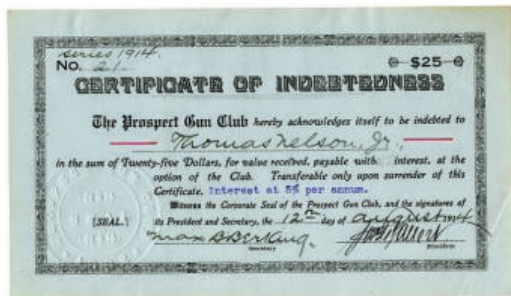 series 1914.
No. 21. $25
CERTIFICATE OF INDEBTEDNESS
The Prospect Gun Club hereby acknowledges itself to be indebted to
Thomas Nelson, Jr.,
in the sum of Twenty-five Dollars, for value received, payable with interest, at the
option of the Club. Transferable only upon surrender of this
Certificate. Interest at 5% per annum.
Witness the Corporate Seal of the Prospect Gun Club, and the signatures of
(SEAL.) its President and Secretary, the 12th day of August
Secretary President